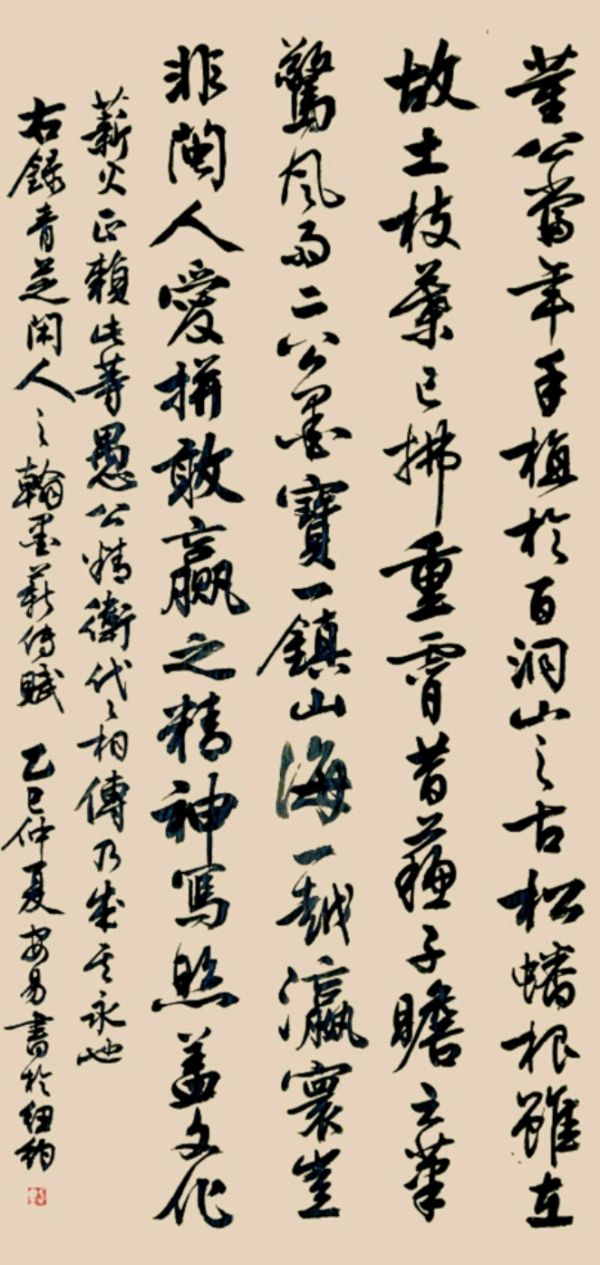 董公當年手植於百洞山之古松蟠根雖在
故土枝葉已拂重霄昔蘇子瞻云筆
驚風雨二公墨寶一鎮山海一越瀛寰豈
非閩人愛拼敢贏之精神寫照蓋文化
薪火正賴此等愚公精衛代々相傳乃成其永也
右錄青芝閑人之翰墨薪傳賦 乙巳仲夏安易書於紐約